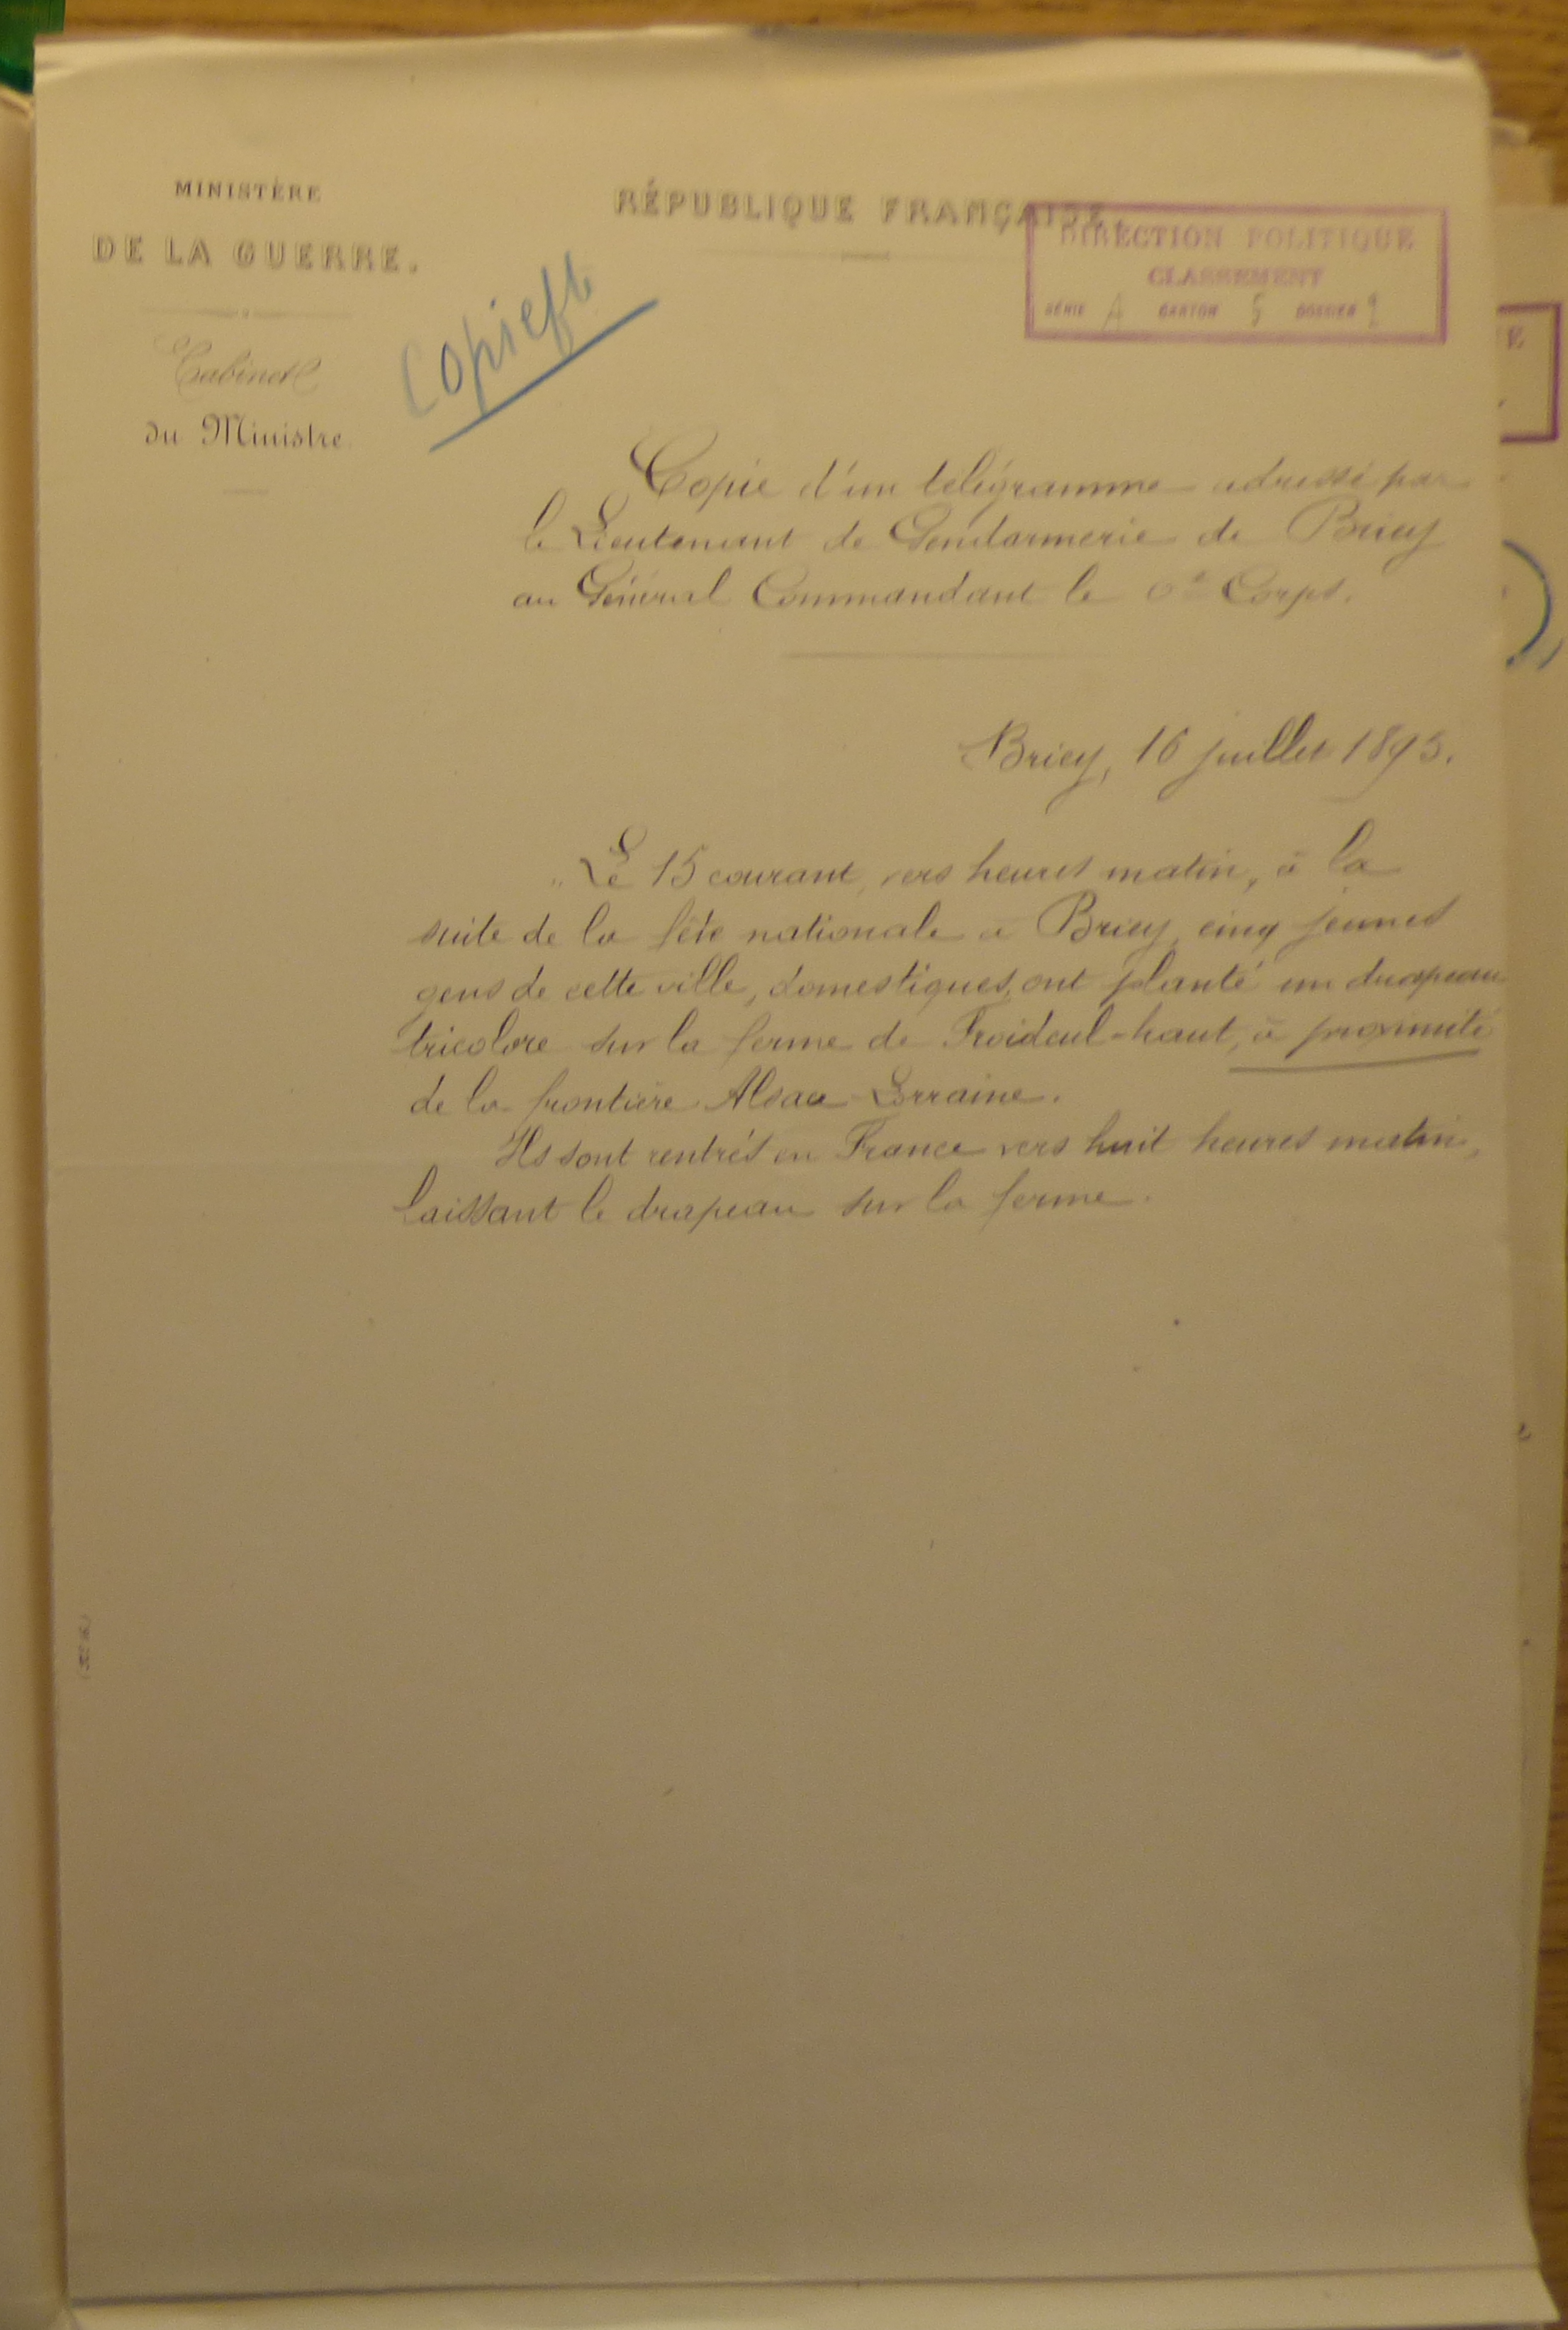 MINISTÈRE
DE LA GUERRE.
Cabinet
du Ministre
RÉPUBLIQUE FRANÇAISE
DIRECTION POLITIQUE
CLASSEMENT
SÉRIE A CARTON 5 DOSSIER 2
Copie d'un télégramme adressé par
le Lieutenant de Gendarmerie de Briey
au Général Commandant le 6e Corps.
Briey, 16 juillet 1895.
"Le 15 courant, vers heures matin, à la
suite de la fête nationale à Briey, cinq jeunes
gens de cette ville, domestiques, ont planté un drapeau
tricolore sur la ferme de Froideul-haut, à proximité
de la frontière Alsace-Lorraine.
Ils sont rentrés en France vers huit heures matin,
laissant le drapeau sur la ferme.